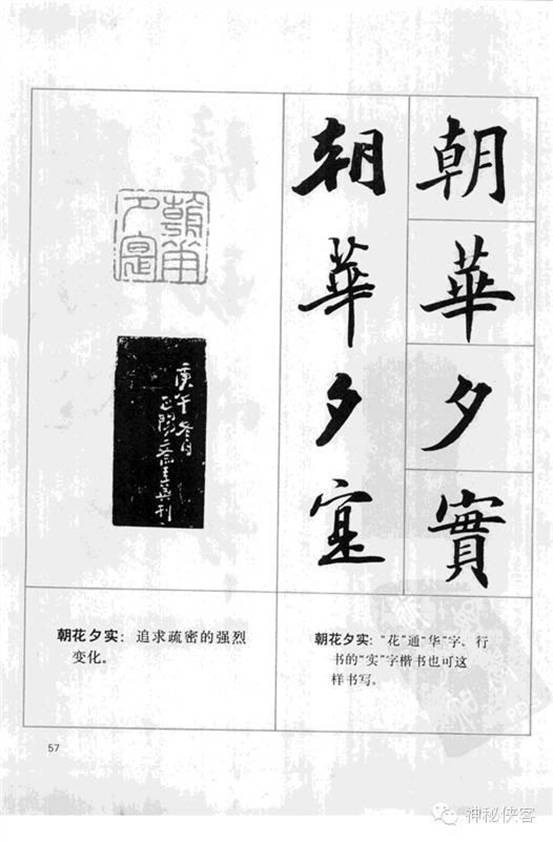 朝華夕實
朝華夕寔
朝花夕实：追求疏密的强烈
变化。
朝花夕实：“花”通“华”字、行
书的“实”字楷书也可这
样书写。
57
神秘侠客